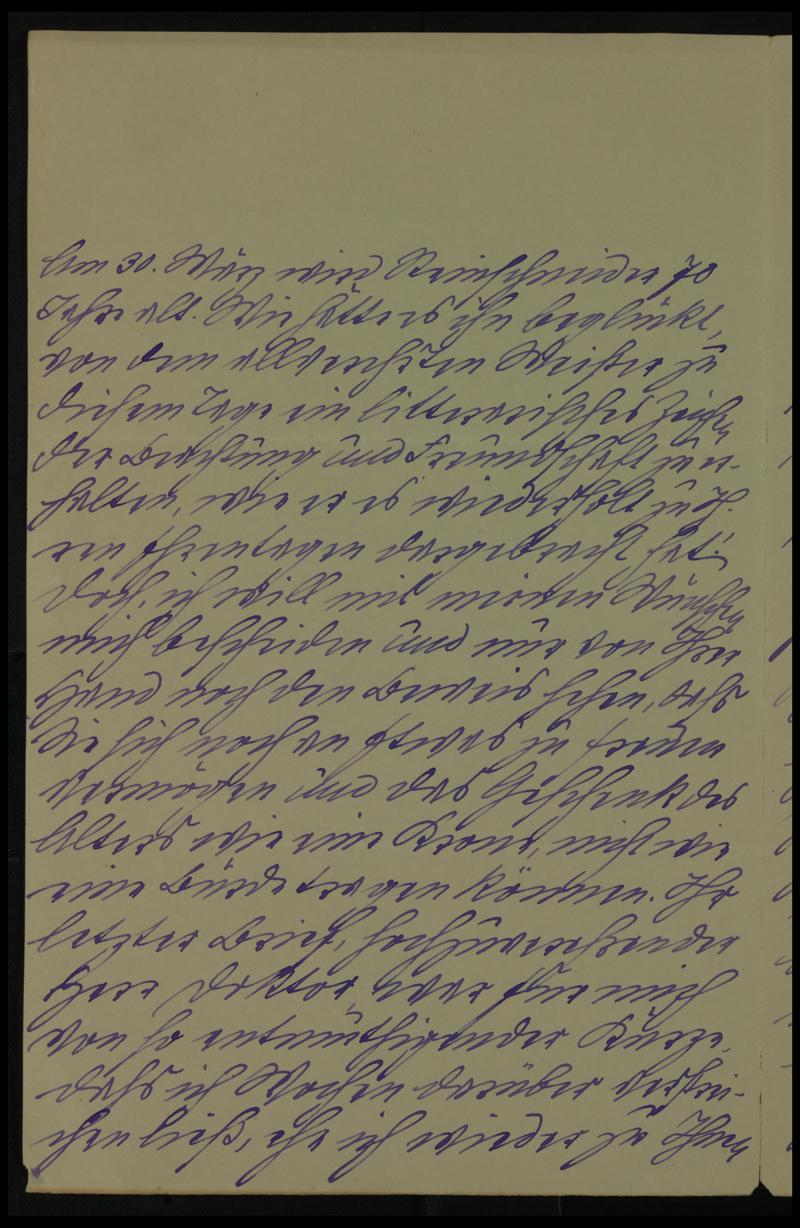 Am 30. März wird Steinschneider 70
Jahre alt. Wie hätte es ihn beglückt,
von dem allverehrten Meister zu
diesem Tage ein litterarisches Zeichen
der Beachtung und Freundschaft zu er-
halten, wie er es wiederholt zu Ih-
ren Ehrentagen dargebracht hat!
Doch, ich will mit meinen Wünschen
mich bescheiden und nur von Ihrer
Hand noch den Beweis sehen, dass
Sie sich noch an Etwas zu freuen
vermögen und das Geschenk des
Alters wie eine Krone, nicht wie
eine Bürde tragen können. Ihr
letzter Brief, hochzuverehrender
Herr Doktor, war für mich
von so entmuthigender Kürze,
dass ich Wochen darüber verstrei-
chen ließ, ehe ich wieder zu Ihnen